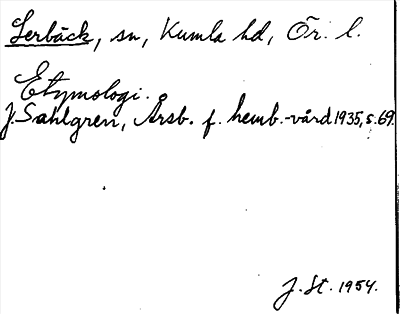 Lerbäck, sn, Kumla hd, Ör. l.
Etymologi.
J. Sahlgren, Årsb. f. hemb.-vård 1935, s. 69.
J. St. 1954.